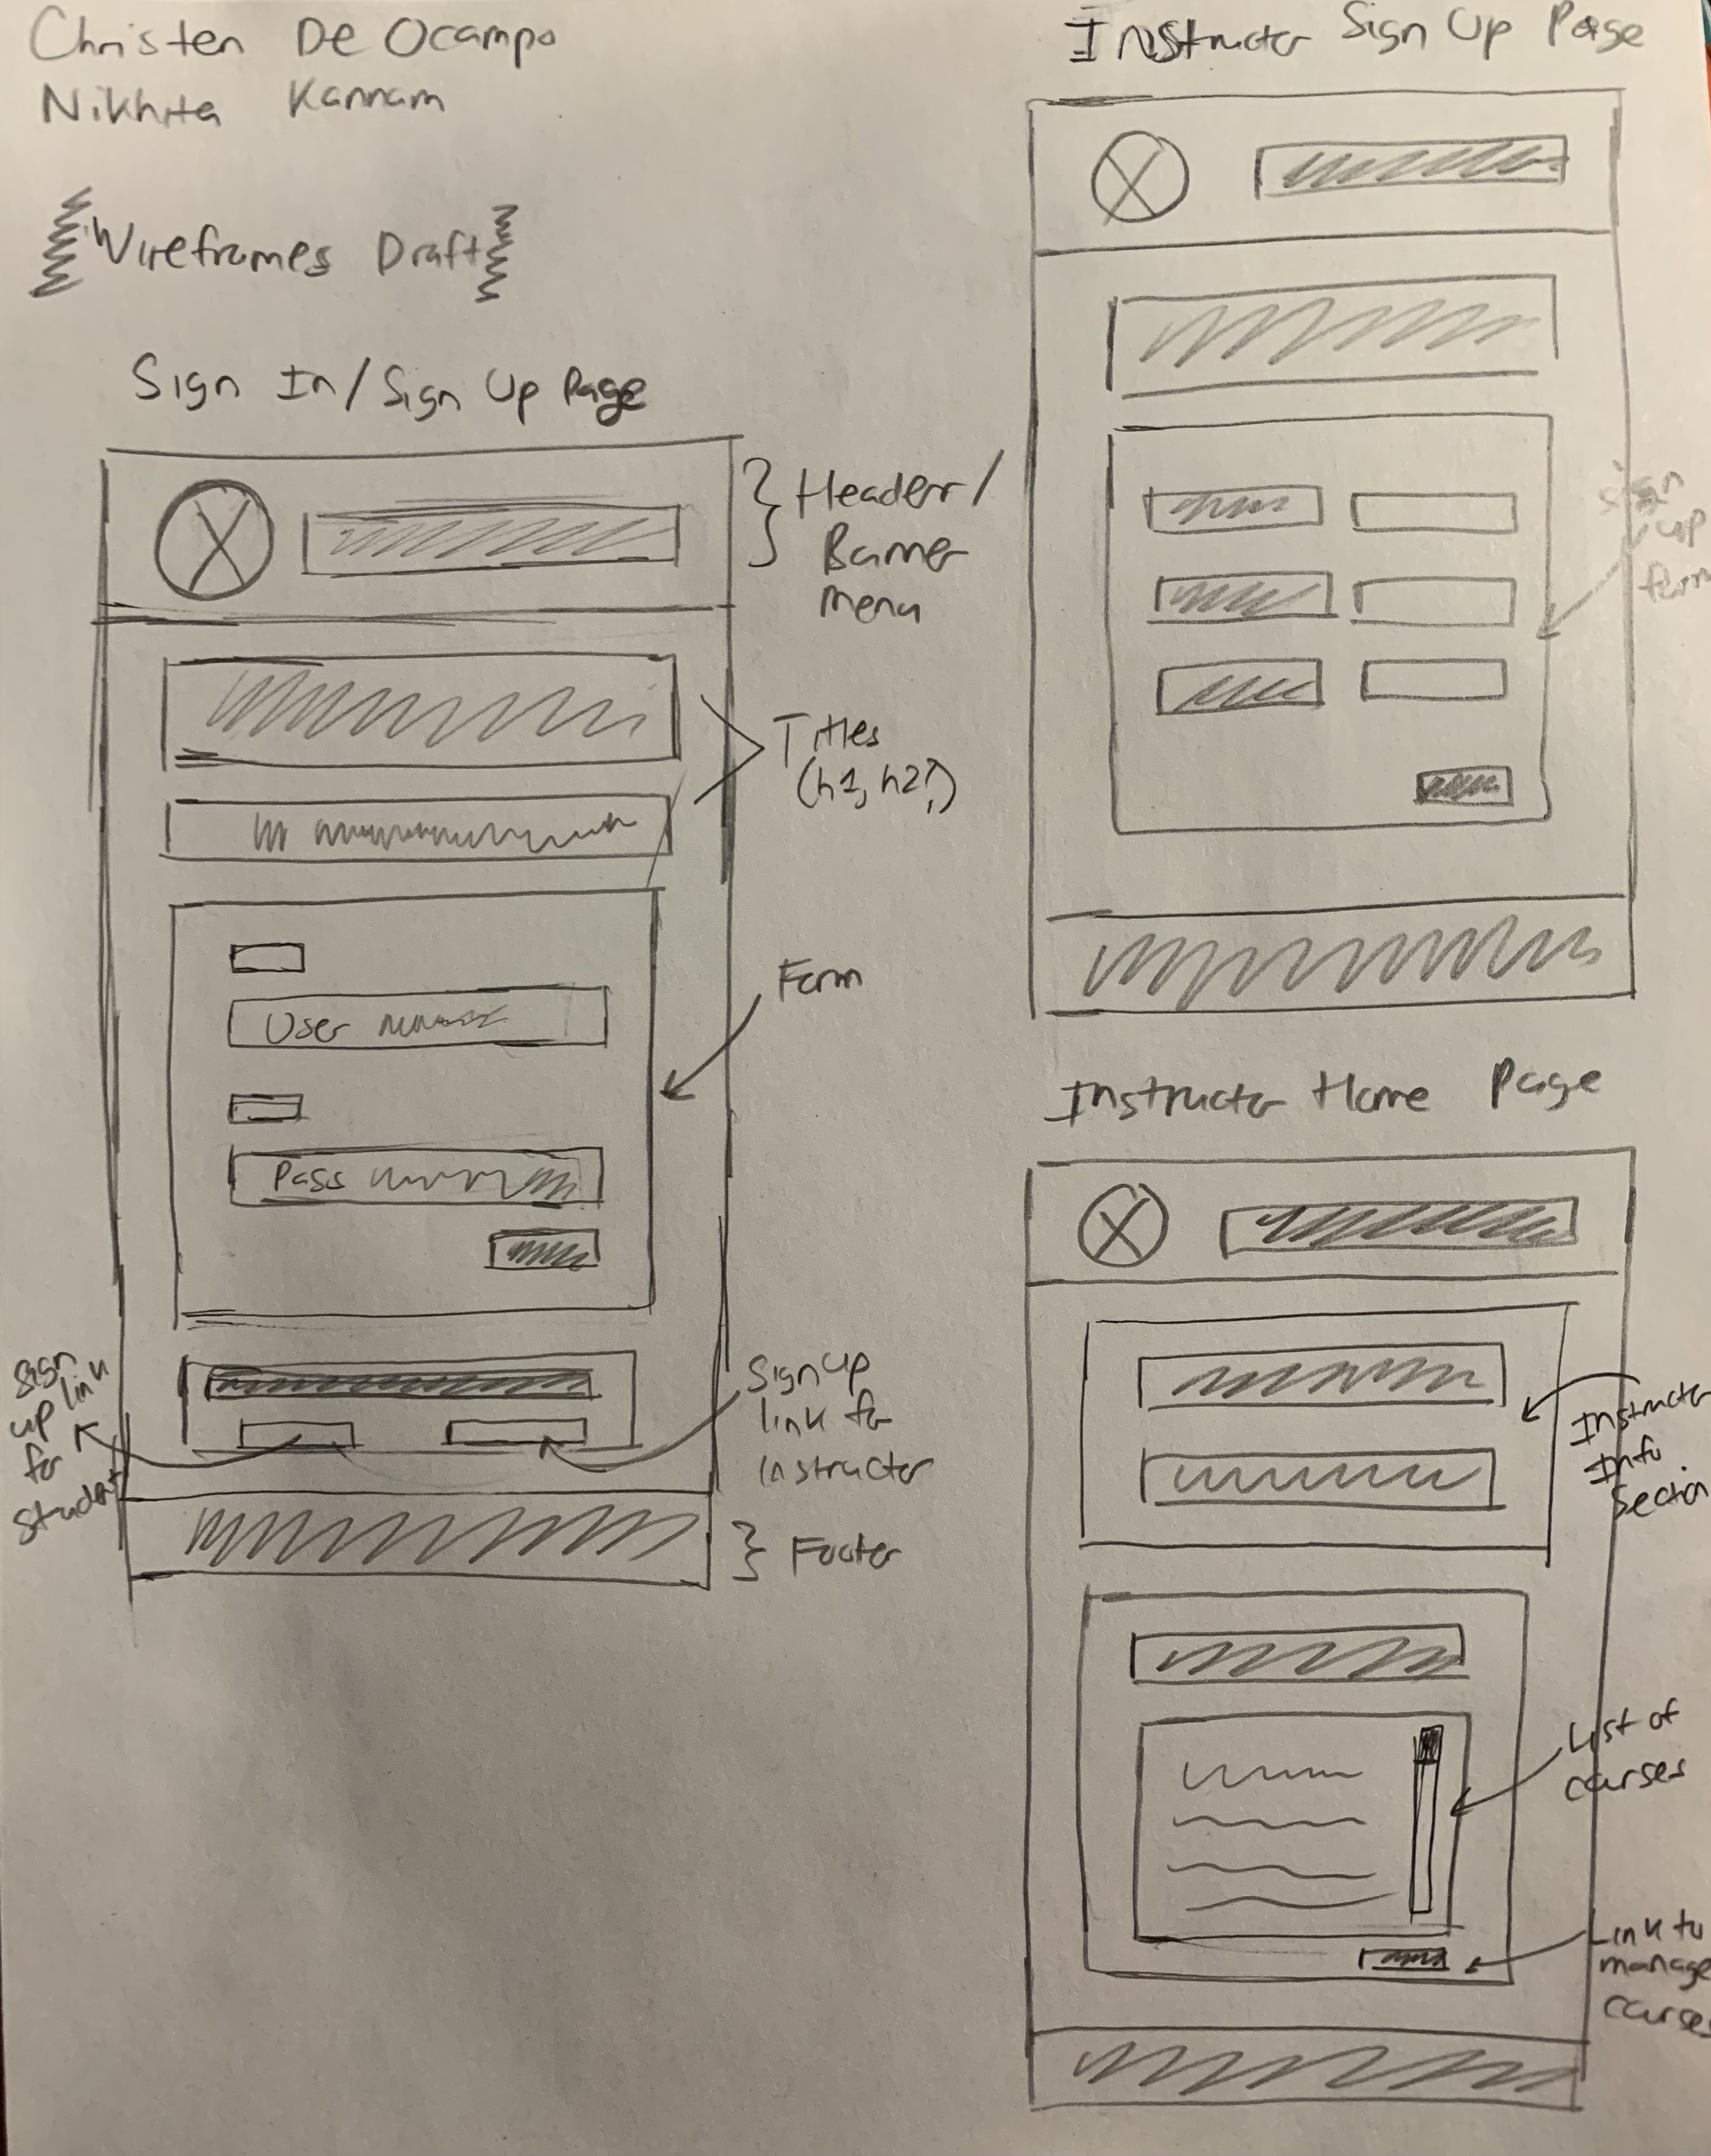 Christen De Ocampo
Nikhita Kannam
Wireframes Draft
Sign In/Sign Up Page
Header/
Banner
menu
Titles
(h1, h2?)
Form
User
Pass
Sign
up link
for
student
Sign up
link for
instructor
Footer
Instructor Sign Up Page
Sign
up
form
Instructor Home Page
Instructor
Info
Section
List of
courses
Link to
manage
courses